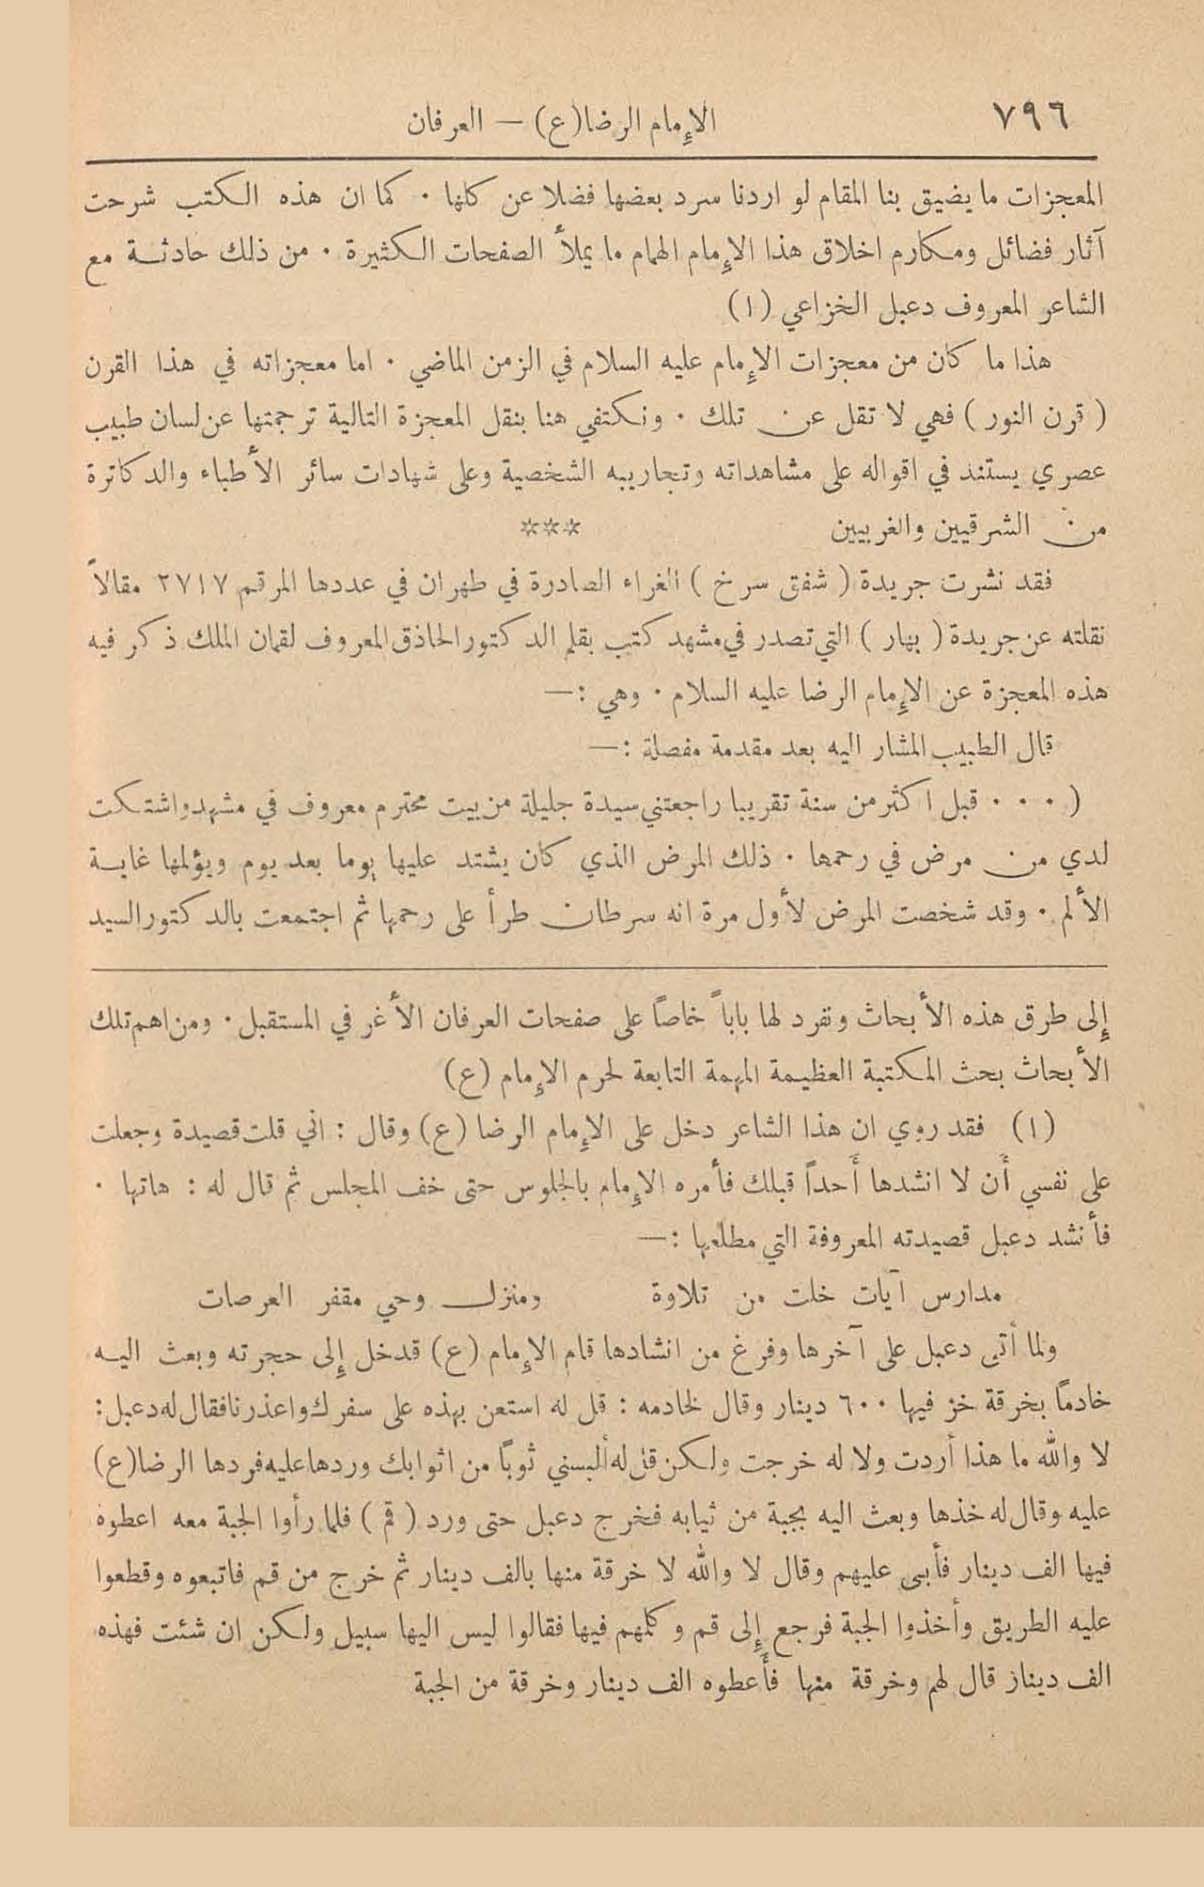 ٧٩٦
الإمام الرضا(ع) — العرفان
المعجزات ما يضيق بنا المقام لو اردنا سرد بعضها فضلا عن كلها . كما ان هذه الكتب شرحت
آثار فضائل ومكارم اخلاق هذا الإمام الهمام ما يملأ الصفحات الكثيرة . من ذلك حادثة مع
الشاعر المعروف دعبل الخزاعي (١)
هذا ما كان من معجزات الإمام عليه السلام في الزمن الماضي . اما معجزاته في هذا القرن
( قرن النور ) فهي لا تقل عن تلك . ونكتفي هنا بنقل المعجزة التالية ترجمتها عن لسان طبيب
عصري يستند في اقواله على مشاهداته وتجاربه الشخصية وعلى شهادات سائر الأطباء والدكاترة
من الشرقيين والغربيين ***
فقد نشرت جريدة ( شفق سرخ ) الغراء الصادرة في طهران في عددها المرقم ٢٧١٧ مقالاً
نقلته عن جريدة ( بهار ) التي تصدر في مشهد كتب بقلم الدكتور الحاذق المعروف لقمان الملك ذكر فيه
هذه المعجزة عن الإمام الرضا عليه السلام . وهي :—
قال الطبيب المشار اليه بعد مقدمة مفصلة :—
( . . . قبل اكثر من سنة تقريبا راجعتني سيدة جليلة من بيت محترم معروف في مشهد واشتكت
لدي من مرض في رحمها . ذلك المرض الذي كان يشتد عليها يوما بعد يوم ويؤلمها غاية
الألم . وقد شخصت المرض لأول مرة انه سرطان طرأ على رحمها ثم اجتمعت بالدكتور السيد
إلى طرق هذه الأبحاث ونفرد لها باباً خاصاً على صفحات العرفان الأغر في المستقبل . ومن اهم تلك
الأبحاث بحث المكتبة العظيمة المهمة التابعة لحرم الإمام (ع)
(١) فقد روي ان هذا الشاعر دخل على الإمام الرضا (ع) وقال : اني قلت قصيدة وجعلت
على نفسي أن لا انشدها أحداً قبلك فأمره الإمام بالجلوس حتى خف المجلس ثم قال له : هاتها .
فأنشد دعبل قصيدته المعروفة التي مطلعها :—
مدارس آيات خلت من تلاوة ومنزل وحي مقفر العرصات
ولما أتى دعبل على آخرها وفرغ من انشادها قام الإمام (ع) فدخل إلى حجرته وبعث اليه
خادماً بخرقة خز فيها ٦٠٠ دينار وقال لخادمه : قل له استعن بهذه على سفرك واعذرنا فقال له دعبل :
لا والله ما هذا أردت ولا له خرجت ولكن قل له ألبسني ثوباً من اثوابك وردها عليه فردها الرضا (ع)
عليه وقال له خذها وبعث اليه بجبة من ثيابه فخرج دعبل حتى ورد ( قم ) فلما رأوا الجبة معه اعطوه
فيها الف دينار فأبى عليهم وقال لا والله لا خرقة منها بالف دينار ثم خرج من قم فاتبعوه وقطعوا
عليه الطريق وأخذوا الجبة فرجع إلى قم وكلمهم فيها فقالوا ليس اليها سبيل ولكن ان شئت فهذه
الف ديناز قال لهم وخرقة منها فأعطوه الف دينار وخرقة من الجبة